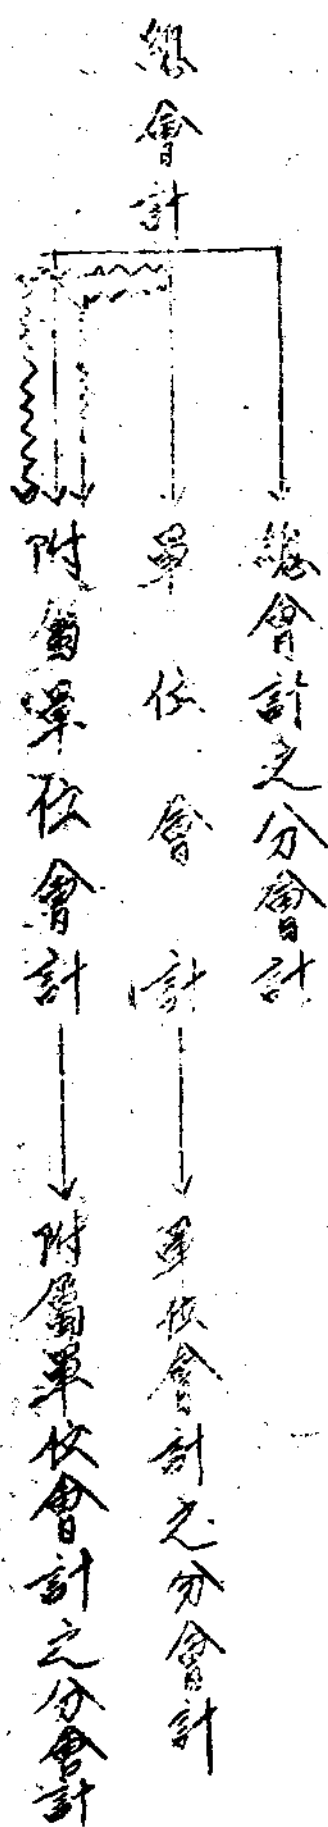 總會計
總會計之分會計
單位會計
單位會計之分會計
附屬單位會計
附屬單位會計之分會計